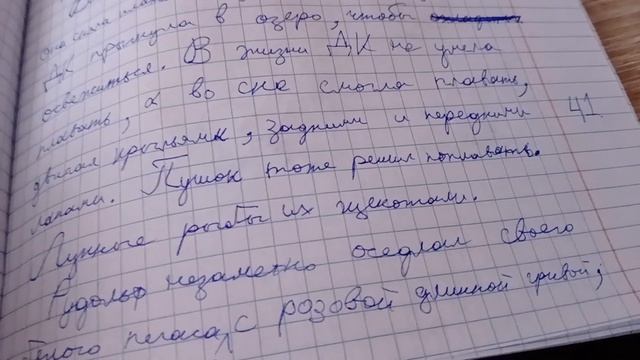 она сама
ДК прыгнула в озеро, чтобы
освежиться. В жизни ДК не умела
плавать, а во сне смогла плавать,
двигая крыльями, задними и передними
41
лапами. Пушок тоже решил поплавать.
Лунные рыбы их щекотали.
незаметно оседлал своего
пегаса, с розовой длинной гривой,